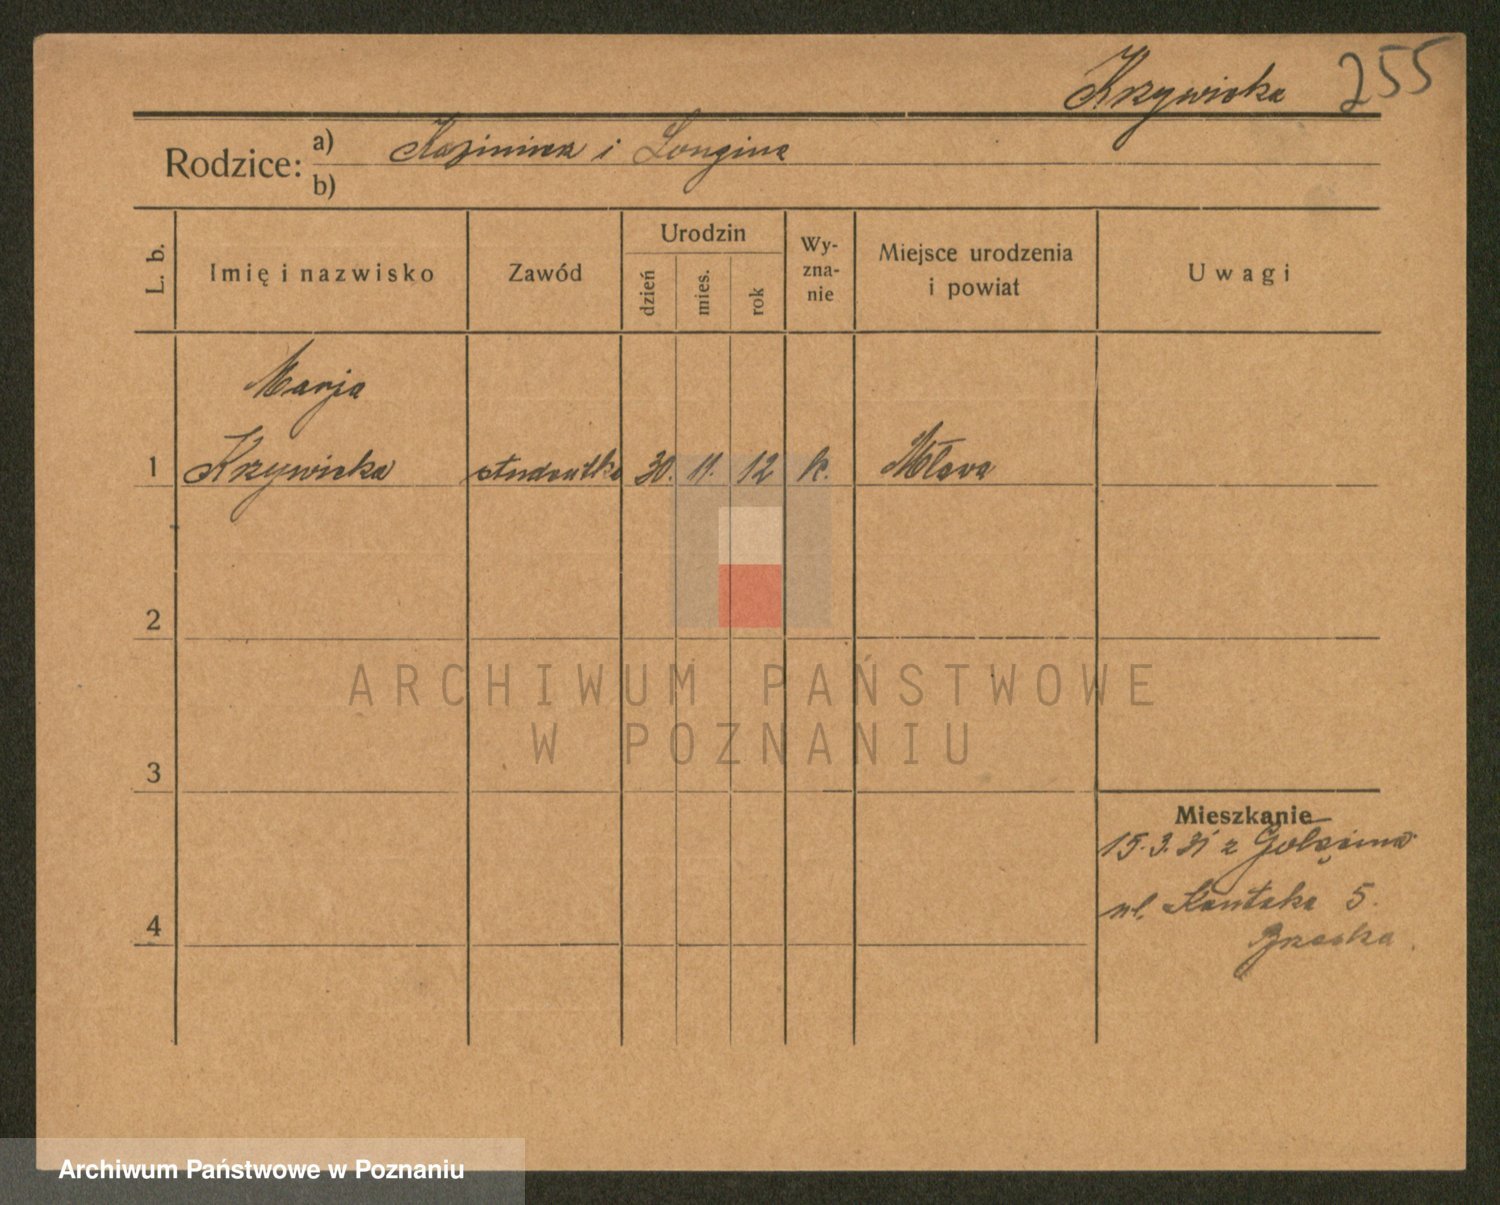 Krzywicka 255
Rodzice: a) Kazimierz i Longina
b)
L. b.
Imię i nazwisko
Zawód
Urodzin
dzień
mies.
rok
Wy-
zna-
nie
Miejsce urodzenia
i powiat
Uwagi
Marja
1 Krzywicka studentka 30. 11. 12 k. Mława
2
3
4
Mieszkanie
15.3.31 z Golęcina
ul. 5.
ARCHIWUM PAŃSTWOWE
W POZNANIU
Archiwum Państwowe w Poznaniu